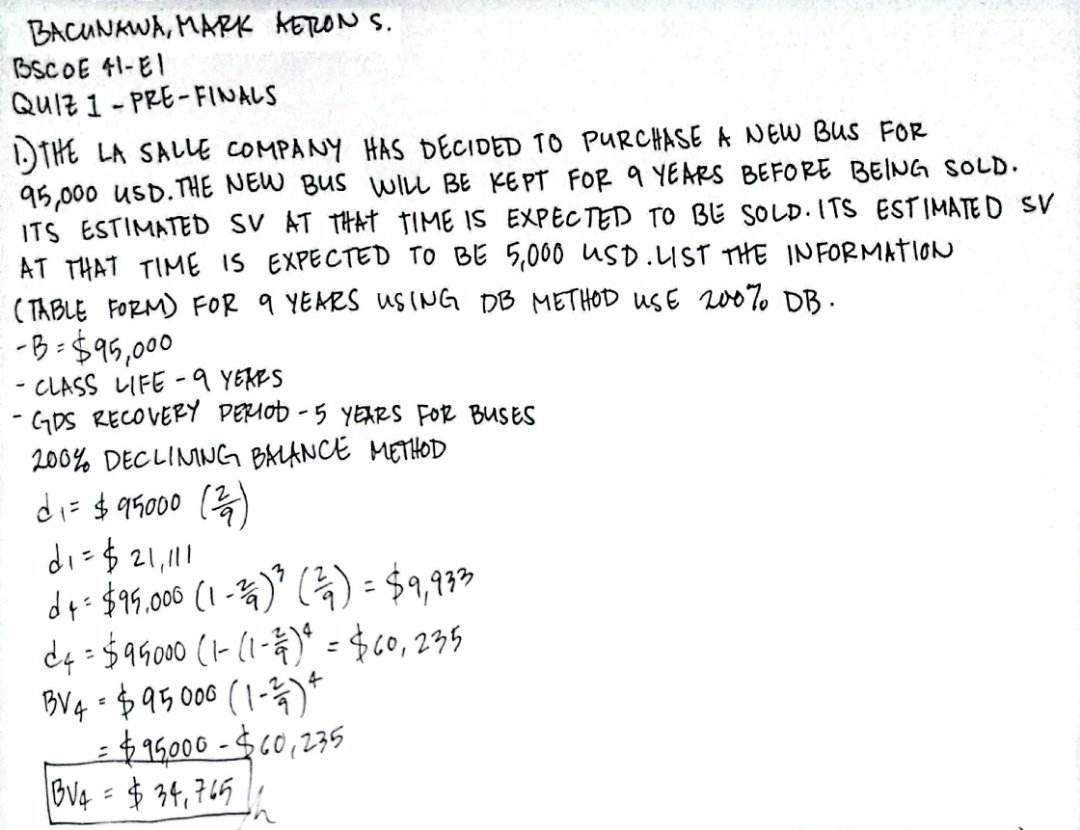 BACUNAWA, MARK AERON S.
BSCOE 41-E1
QUIZ 1 - PRE-FINALS
1.) THE LA SALLE COMPANY HAS DECIDED TO PURCHASE A NEW BUS FOR
95,000 USD. THE NEW BUS WILL BE KEPT FOR 9 YEARS BEFORE BEING SOLD.
ITS ESTIMATED SV AT THAT TIME IS EXPECTED TO BE SOLD. ITS ESTIMATED SV
AT THAT TIME IS EXPECTED TO BE 5,000 USD. LIST THE INFORMATION
(TABLE FORM) FOR 9 YEARS USING DB METHOD USE 200% DB.
- B = $95,000
- CLASS LIFE - 9 YEARS
- GDS RECOVERY PERIOD - 5 YEARS FOR BUSES
200% DECLINING BALANCE METHOD
d1 = $ 95000 (2/9)
d1 = $ 21,111
d4 = $95,000 (1 - 2/9)³ (2/9) = $9,933
d4 = $95000 (1 - (1 - 2/9)⁴ = $60,235
BV4 = $95000 (1 - 2/9)⁴
= $95000 - $60,235
BV4 = $ 34,765